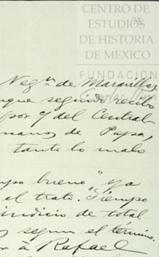 CENTRO DE
ESTUDIOS
DE HISTORIA
DE MEXICO
FUNDACIÓN
Negn. de Maravillas
que segundo recibo
por y del Central
manos de Papá,
tanto lo malo
bueno" ya
el trato. Tiempo
indicio de total
segun el termino,
á Rafael